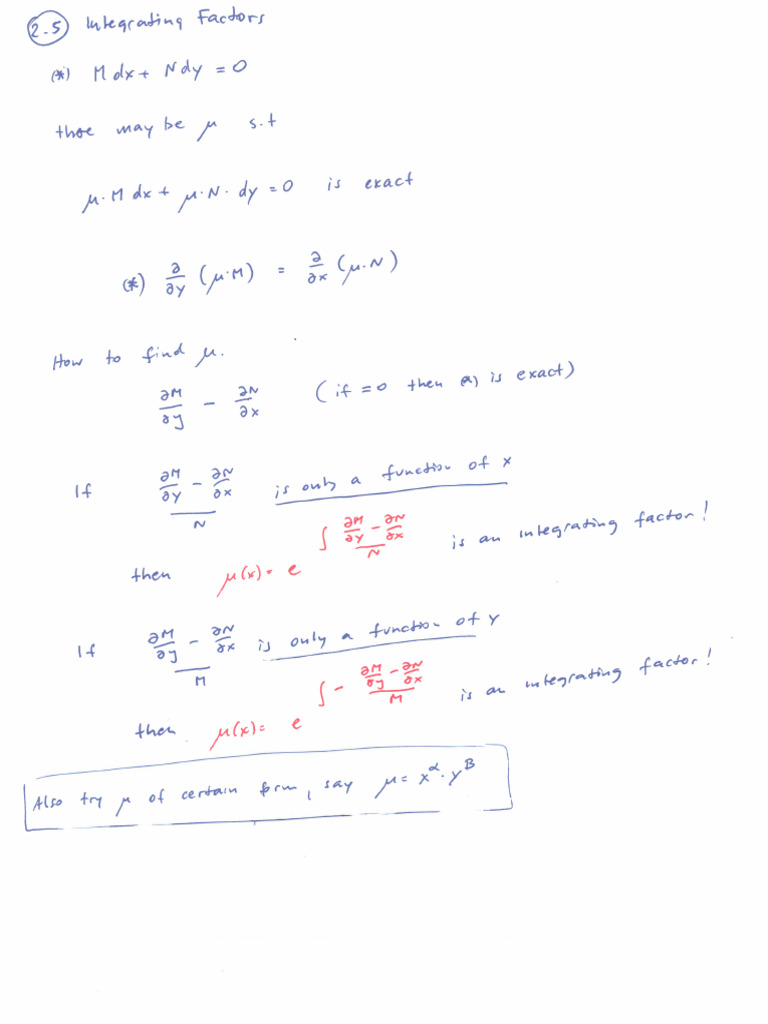 2.5 Integrating Factors
(*) M dx + N dy = 0
there may be μ s.t
μ·M dx + μ·N·dy = 0 is exact
(*) ∂/∂y (μ·M) = ∂/∂x (μ·N)
How to find μ.
∂M/∂y − ∂N/∂x (if = 0 then (*) is exact)
If (∂M/∂y − ∂N/∂x)/N is only a function of x
then μ(x) = e^∫ (∂M/∂y − ∂N/∂x)/N is an integrating factor!
If (∂M/∂y − ∂N/∂x)/M is only a function of y
then μ(x) = e^∫ − (∂M/∂y − ∂N/∂x)/M is an integrating factor!
Also try μ of certain form, say μ = x^α · y^β